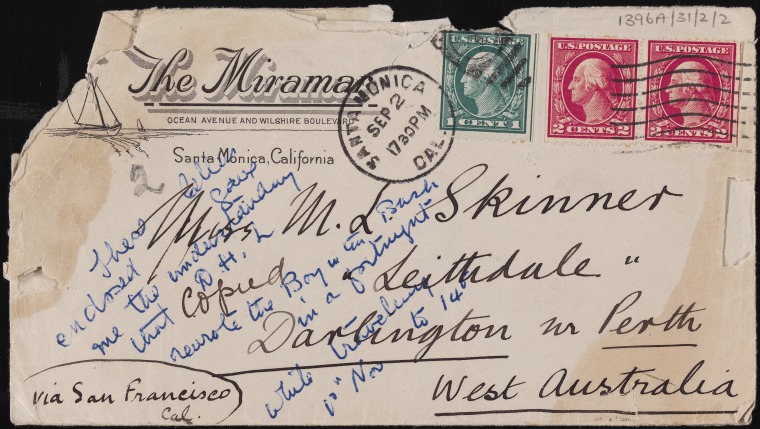 1396A/31/2/2
The Miramar
OCEAN AVENUE AND WILSHIRE BOULEVARD
Santa Monica, California
SANTA MONICA
SEP 2
1730PM
CAL.
U.S. POSTAGE
1 CENT 1
U.S. POSTAGE
2 CENTS 2
U.S. POSTAGE
2 CENTS 2
2
Miss M. L. Skinner
"Leithdale"
Darlington nr Perth
West Australia
via San Francisco
Cal.
copied
These
enclosed gave
me the understanding
that D. H. L
rewrote the Boy in the Bush
in a fortnight
while travelling
Nov to 14